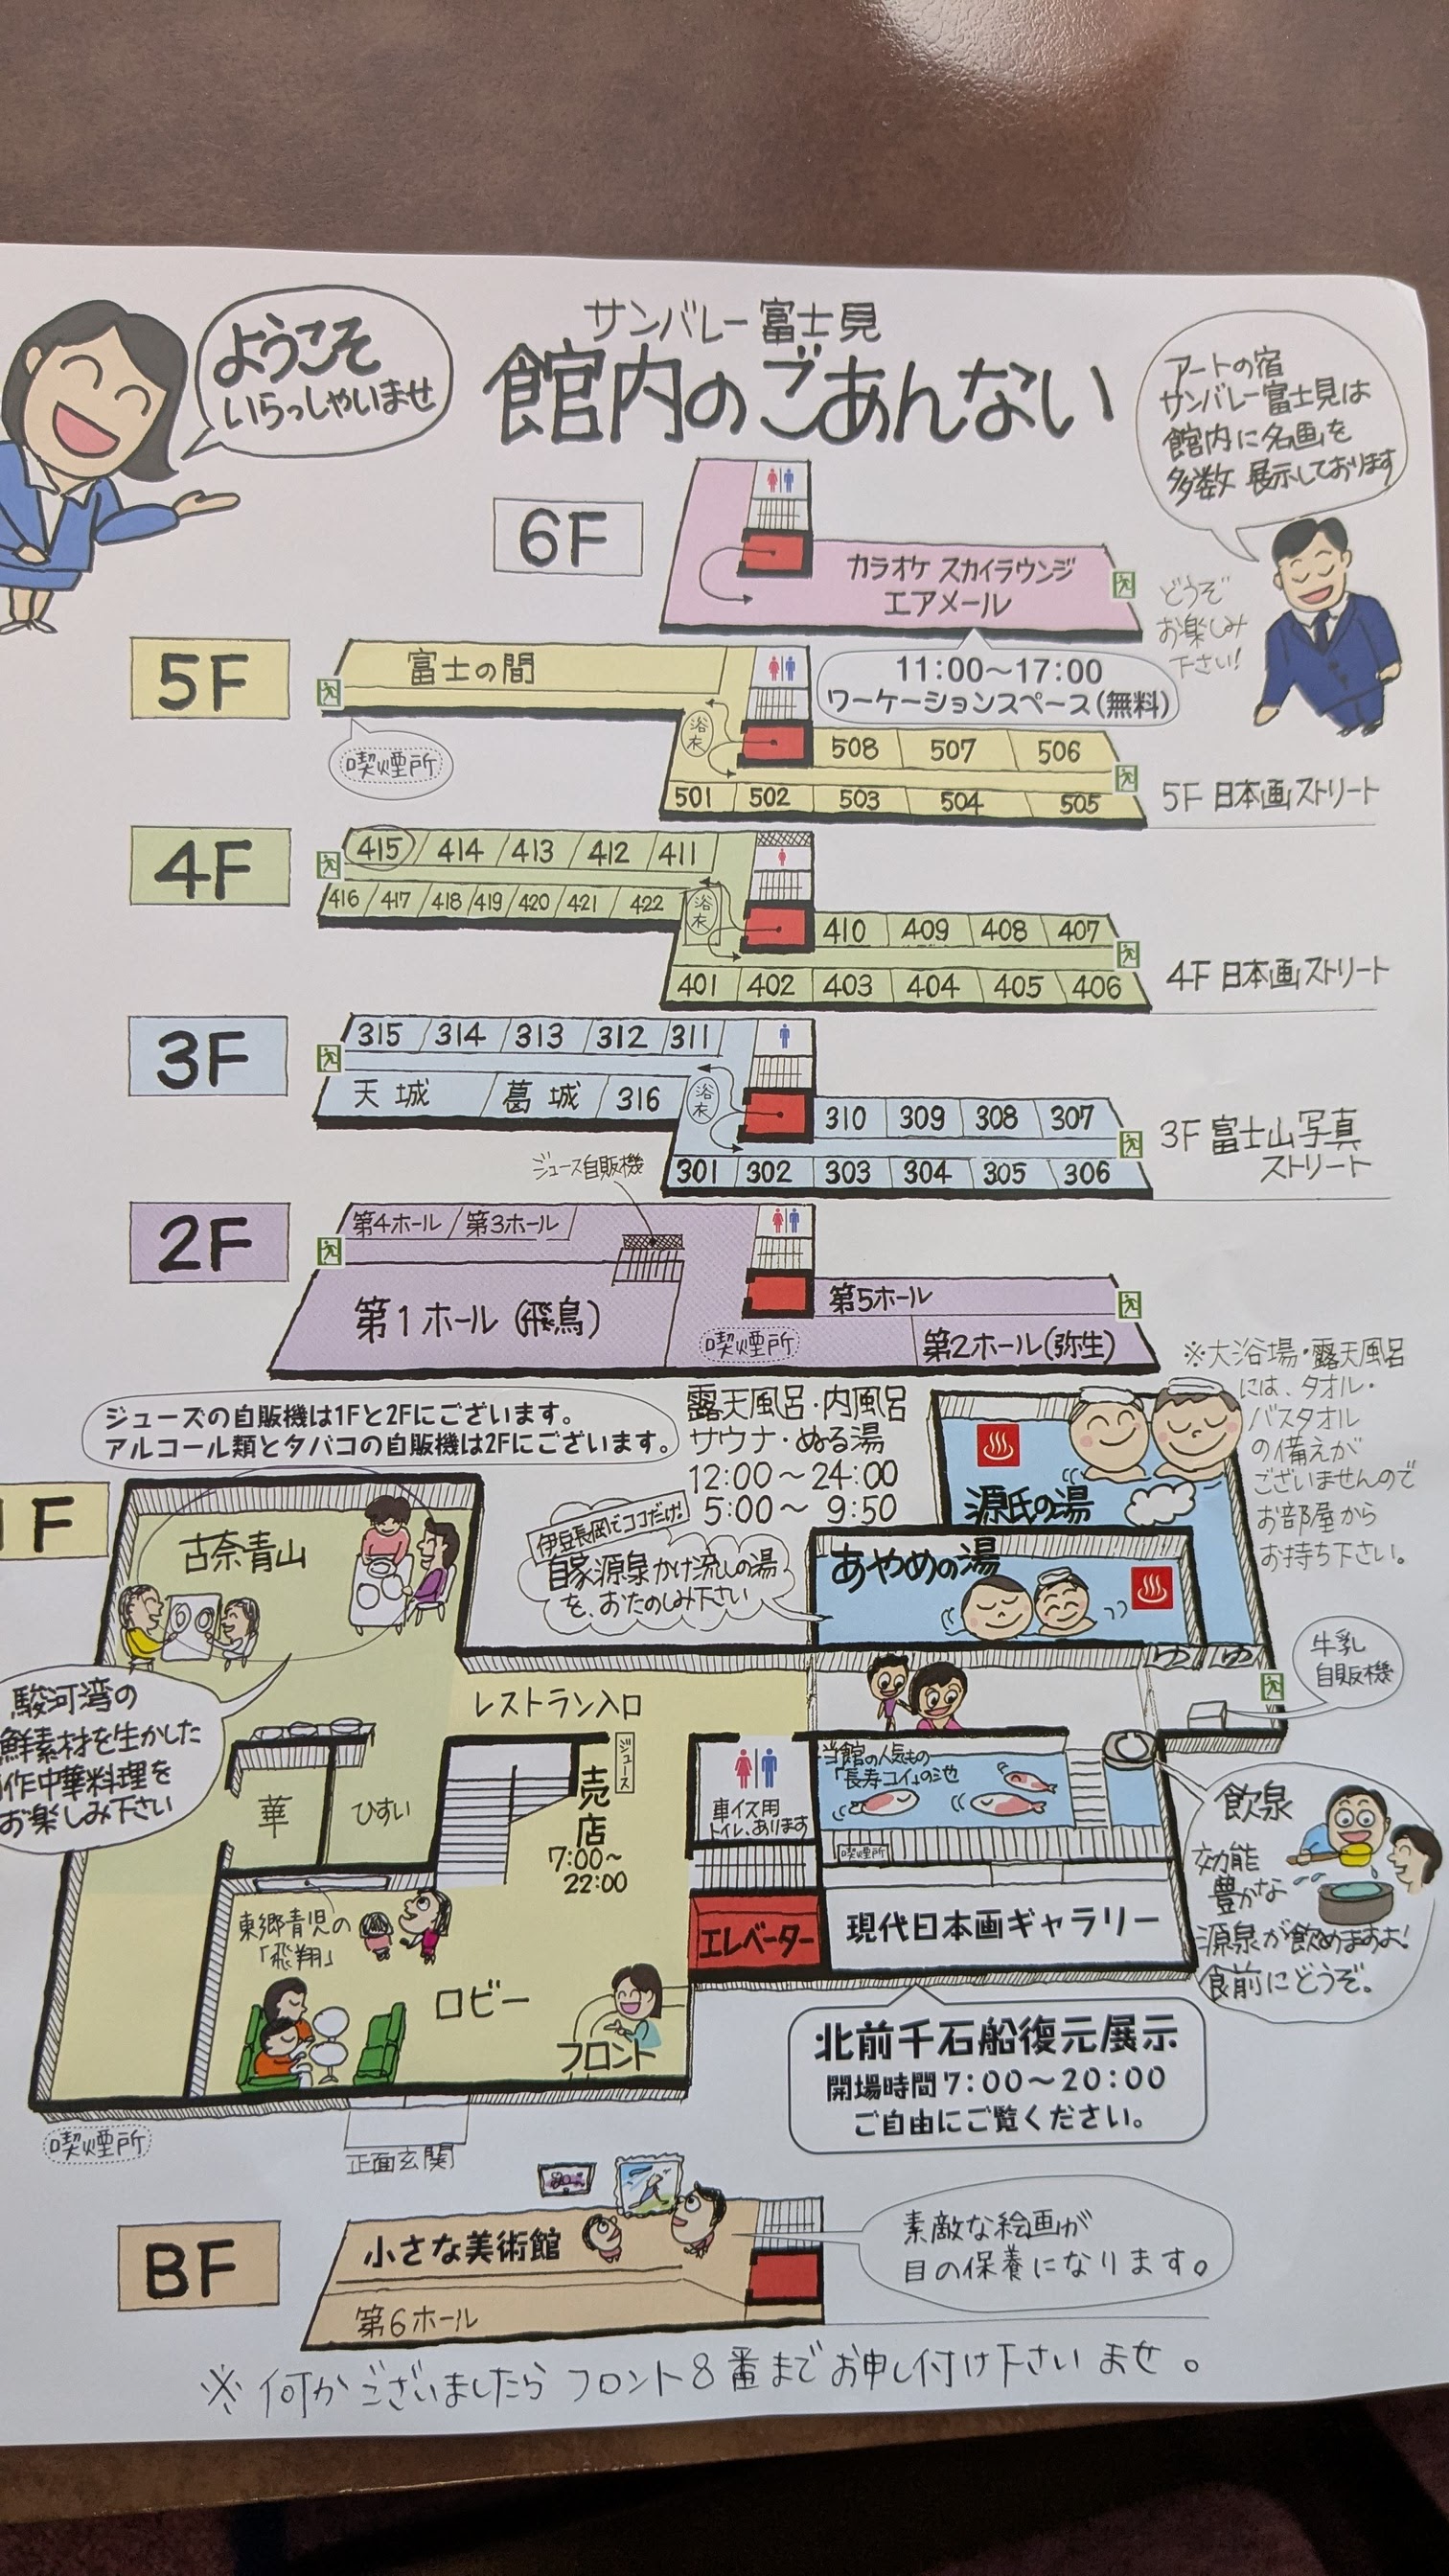 ようこそ
いらっしゃいませ
サンバレー富士見
館内のごあんない
アートの宿
サンバレー富士見は
館内に名画を
多数展示しております
どうぞ
お楽しみ
下さい!
6F
カラオケ スカイラウンジ
エアメール
11:00～17:00
ワーケーションスペース(無料)
5F
富士の間
喫煙所
浴衣
508 507 506
501 502 503 504 505
5F 日本画ストリート
4F
415 414 413 412 411
416 417 418 419 420 421 422
浴衣
410 409 408 407
401 402 403 404 405 406
4F 日本画ストリート
3F
315 314 313 312 311
天城 葛城 316
浴衣
310 309 308 307
301 302 303 304 305 306
3F 富士山写真
ストリート
ジュース自販機
2F
第4ホール 第3ホール
第1ホール(飛鳥)
喫煙所
第5ホール
第2ホール(弥生)
※大浴場・露天風呂
には、タオル・
バスタオル
の備えが
ございませんので
お部屋から
お持ち下さい。
ジューズの自販機は1Fと2Fにございます。
アルコール類とタバコの自販機は2Fにございます。
露天風呂・内風呂
サウナ・ぬる湯
12:00～24:00
5:00～ 9:50
源氏の湯
あやめの湯
伊豆長岡でココだけ!
自家源泉かけ流しの湯
を、おたのしみ下さい
1F
古奈青山
駿河湾の
鮮素材を生かした
作中華料理を
お楽しみ下さい
レストラン入口
華
ひすい
ジュース
売店
7:00～
22:00
車イス用
トイレ、あります
当館の人気もの
「長寿コイ」の池
喫煙所
ゆ ゆ
牛乳
自販機
飲泉
効能
豊かな
源泉が飲めますよ!
食前にどうぞ。
東郷青児の
「飛翔」
ロビー
フロント
エレベーター
現代日本画ギャラリー
北前千石船復元展示
開場時間7:00～20:00
ご自由にご覧ください。
喫煙所
正面玄関
BF
小さな美術館
第6ホール
素敵な絵画が
目の保養になります。
※何かございましたらフロント8番までお申し付け下さいませ。